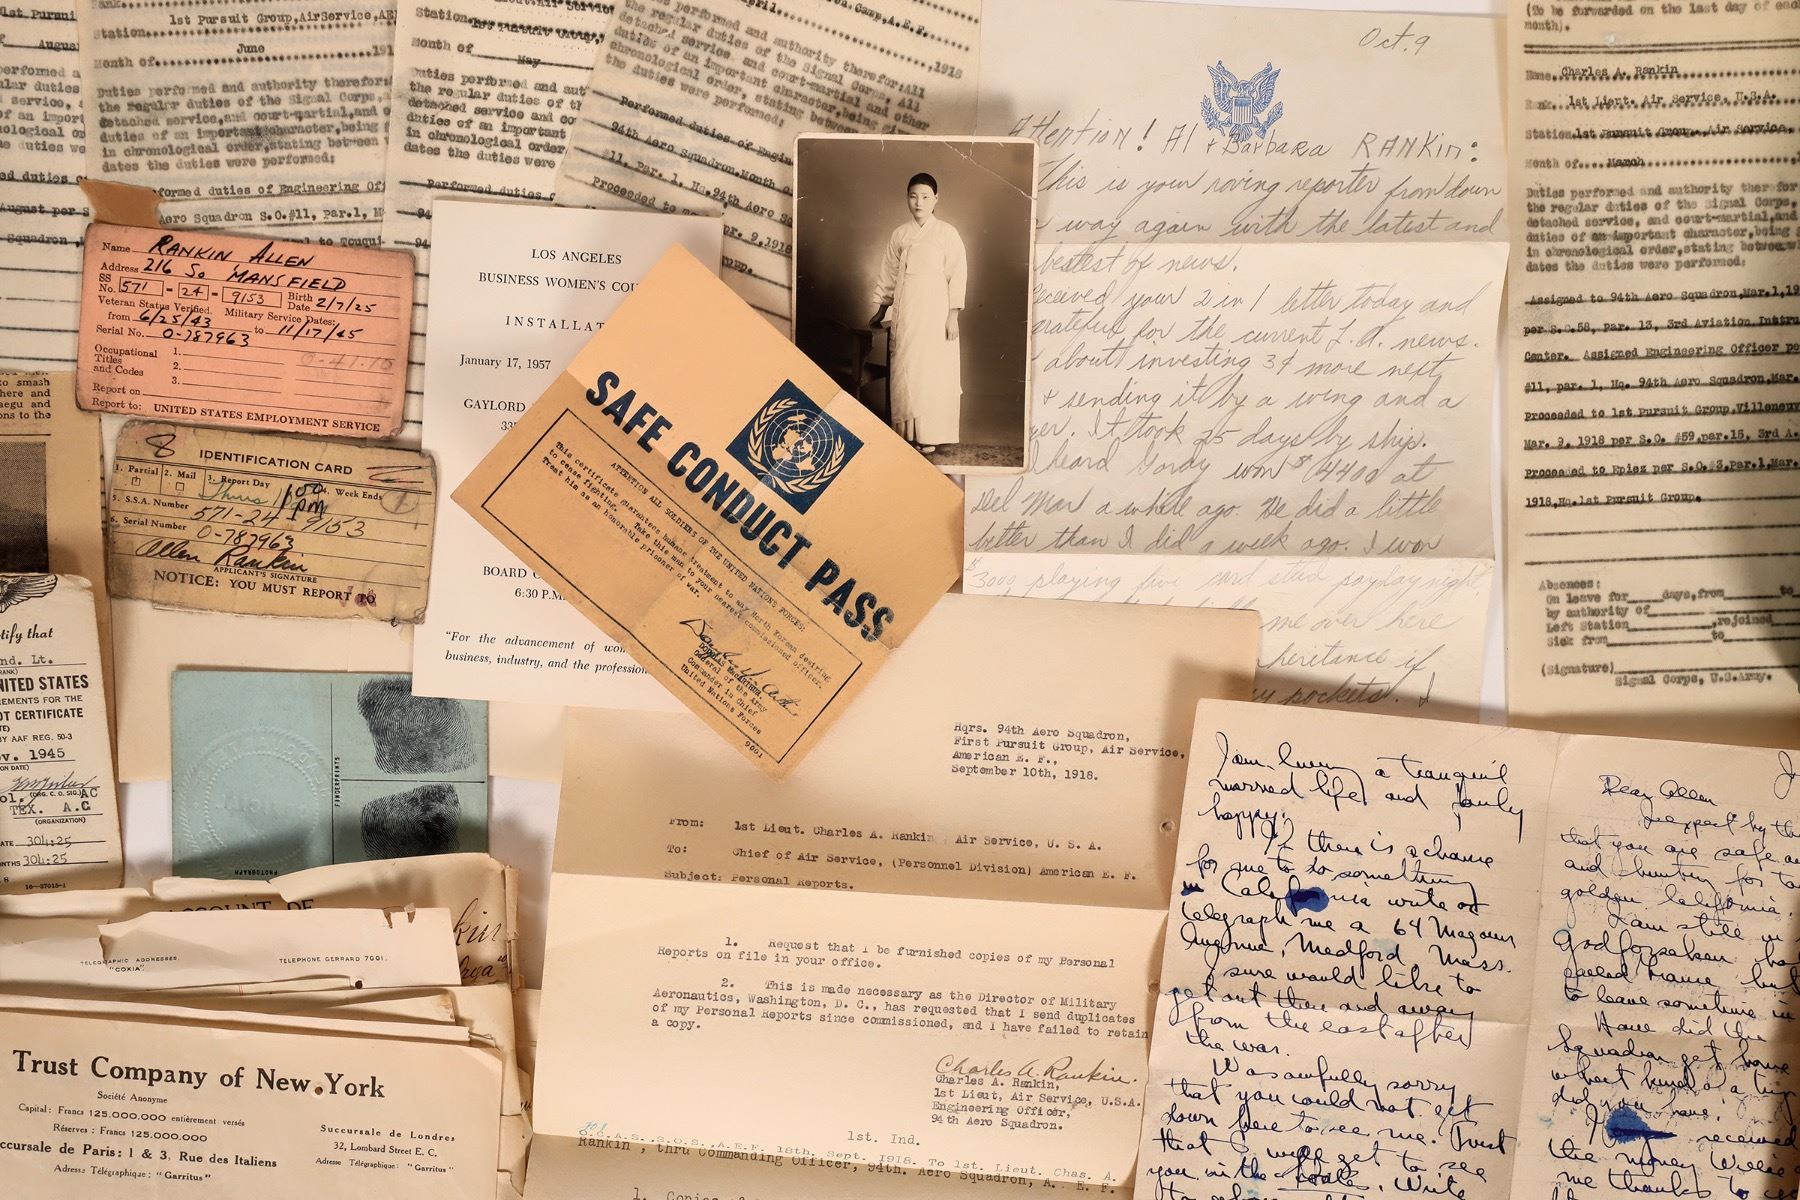 1st Pursuit Group, Air Service, AE
Station
June
Month of 191
Duties performed and authority therefor:
the regular duties of the Signal Corps,
detached service, and court-martial, and o
duties of an important character, being
in chronological order, stating between
dates the duties were performed;
formed duties of Engineering Of
Aero Squadron S.O.#11, par.1,
Station
1st Pursuit Group,
Month of May
Duties performed and aut
the regular duties of th
detached service and co
duties of an important
in chronological order
dates the duties were
Performed duties
April
Camp, A. E. F.
,1918
performed and authority therefor: All
the regular duties of the Signal Corps, All
detached service, and court-martial and other
duties of an important character, being
chronological order, stating between
the duties were performed;
Performed duties of Engin
94th Aero Squadron, Month of
#11, Par. 1, Hq. 94th Aero
Proceeded to
Apr. 9, 1918
Name RANKIN ALLEN
Address 216 So MANSFIELD
SS No. 571 - 24 - 9153 Birth Date 2/7/25
Veteran Status Verified. Military Service Dates:
from 6/25/43 to 11/17/45
Serial No. O-787963
Occupational Titles and Codes 1. O-41.10
2.
3.
Report on
Report to: UNITED STATES EMPLOYMENT SERVICE
8
IDENTIFICATION CARD
1. Partial 2. Mail 3. Report Day 4. Week Ends
Thurs 1:00 pm
5. S.S.A. Number
571-24-9153
6. Serial Number
O-787963
Allen Rankin
APPLICANT'S SIGNATURE
NOTICE: YOU MUST REPORT TO
to smash
here and
aegu and
ons to the
tify that
nd. Lt.
(RANK)
NITED STATES
REMENTS FOR THE
OT CERTIFICATE
BY AAF REG. 50-3
v. 1945
TEX. A.C
(ORGANIZATION)
304:25
304:25
16-37015-1
FINGERPRINTS
PHOTOGRAPH
LOS ANGELES
BUSINESS WOMEN'S COU
INSTALLAT
January 17, 1957
GAYLORD
BOARD
6:30 P.M.
"For the advancement of wom
business, industry, and the profession
SAFE CONDUCT PASS
ATTENTION ALL SOLDIERS OF THE UNITED NATIONS FORCES:
This certificate guarantees humane treatment to any North Korean desiring
to cease fighting. Take this man to your nearest commissioned officer.
Treat him as an honorable prisoner of war.
DOUGLAS MacARTHUR
General of the Army
Commander in Chief
United Nations Forces
9001
Oct. 9
Attention! Al + Barbara RANKin:
This is your roving reporter from down
way again with the latest and
bestest of news.
eceived your 2 in 1 letter today and
grateful for the current L.A. news.
about investing 3¢ more next
+ sending it by a wing and a
er. It took 25 days by ship.
heard Gordy won $4400 at
Del Mar a while ago. He did a little
better than I did a week ago. I won
$3000 playing five card stud payday night,
me over here
heritance if
my pockets. I
(To be forwarded on the last day of each
month).
Name. Charles A. Rankin
Rank. 1st Lieut. Air Service, U.S.A.
Station. 1st Pursuit Group, Air Service,
Month of March
Duties performed and authority therefor
the regular duties of the Signal Corps,
detached service, and court-martial, and
duties of an important character, being
in chronological order, stating between
dates the duties were performed:
Assigned to 94th Aero Squadron, Mar.1,19
per S.O.58, Par. 13, 3rd Aviation Instru
Center. Assigned Engineering Officer pe
#11, par. 1, Hq. 94th Aero Squadron, Mar.
Proceeded to 1st Pursuit Group, Villeneuv
Mar. 9, 1918 per S.O. #59, par.15, 3rd A.
Proceeded to Epiez per S.O.#3, Par.1, Mar.
1918, Hq. 1st Pursuit Group.
Absences:
On leave for days, from to
by authority of
Left Station ,rejoined
Sick from to
(Signature)
Signal Corps, U.S.Army.
Hqrs. 94th Aero Squadron,
First Pursuit Group, Air Service,
American E. F.,
September 10th, 1918.
From: 1st Lieut. Charles A. Rankin, Air Service, U. S. A.
To: Chief of Air Service, (Personnel Division) American E. F.
Subject: Personal Reports.
1. Request that I be furnished copies of my Personal
Reports on file in your office.
2. This is made necessary as the Director of Military
Aeronautics, Washington, D. C., has requested that I send duplicates
of my Personal Reports since commissioned, and I have failed to retain
a copy.
Charles A. Rankin.
Charles A. Rankin,
1st Lieut, Air Service, U.S.A.
Engineering Officer,
94th Aero Squadron.
1st. Ind.
O.C.A.S. S.O.S. A.E.F. 18th. Sept. 1918. To 1st. Lieut. Chas. A.
Rankin, thru Commanding Officer, 94th. Aero Squadron, A. E. F.
1. Copies
I am living a tranquil
married life and family
happy.
If there is a chance
for me to do something
in California write or
telegraph me a 64 Magoun
Avenue, Medford Mass.
I sure would like to
get out there and away
from the east after
the war.
Was awfully sorry
that you could not get
down here to see me. Trust
that I will get to see
you in the States. Write
Dear Allen
I expect by th
that you are safe a
and
golden California.
I am still in
Godforsaken
to leave something in
Have did the
Squadron get home
what kind of a trip
did you have.
I received
the money Willie
me thanks to
ACCOUNT OF
TELEGRAPHIC ADDRESSES,
"COXIA"
TELEPHONE GERRARD 7001.
Trust Company of New York
Société Anonyme
Capital: Francs 125.000.000 entièrement versés
Réserves: Francs 125.000.000
ccursale de Paris: 1 & 3, Rue des Italiens
Adresse Télégraphique: "Garritus"
Succursale de Londres
32, Lombard Street E. C.
Adresse Télégraphique: "Garritus"